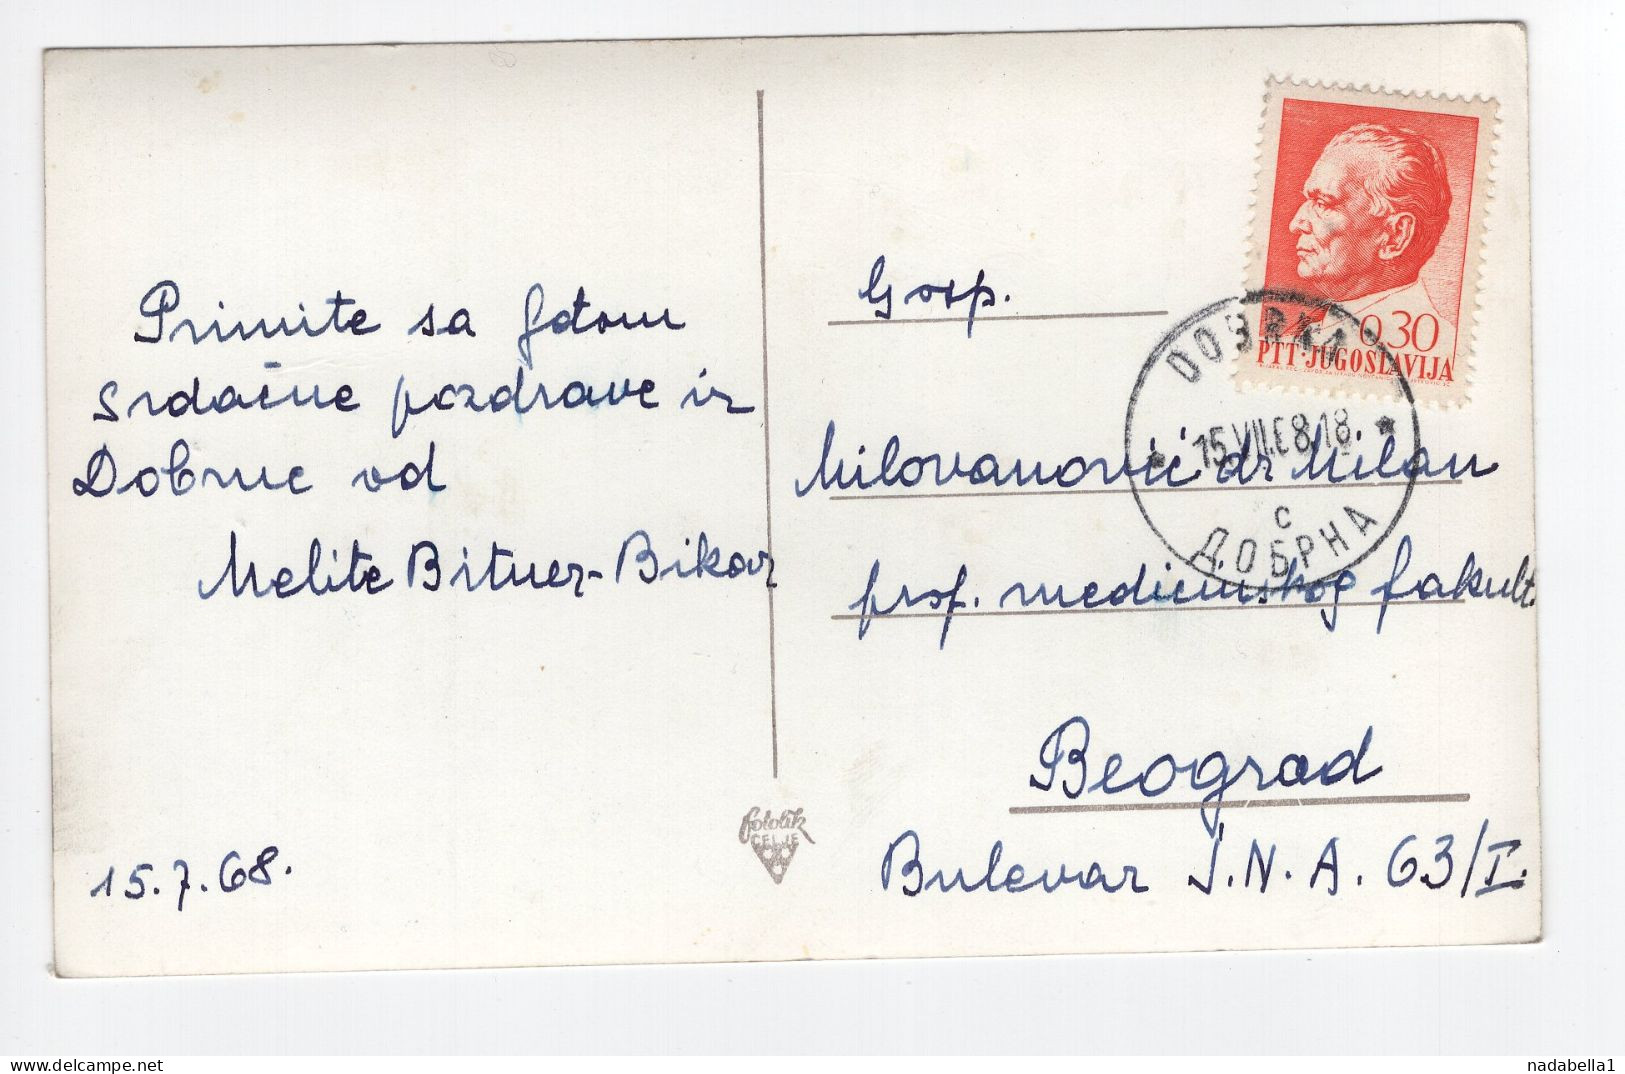 Primite sa fotom
srdačne pozdrave iz
Dobrne od
Melite Bitner-Bikar
15.7.68.
fotolik
CELJE
0,30
PTT·JUGOSLAVIJA
DOBRNA
15.VII.68.18
c
ДОБРНА
Gosp.
Milovanović dr Milan
prof. medicinskog fakult.
Beograd
Bulevar J.N.A. 63/I.
nadabella1